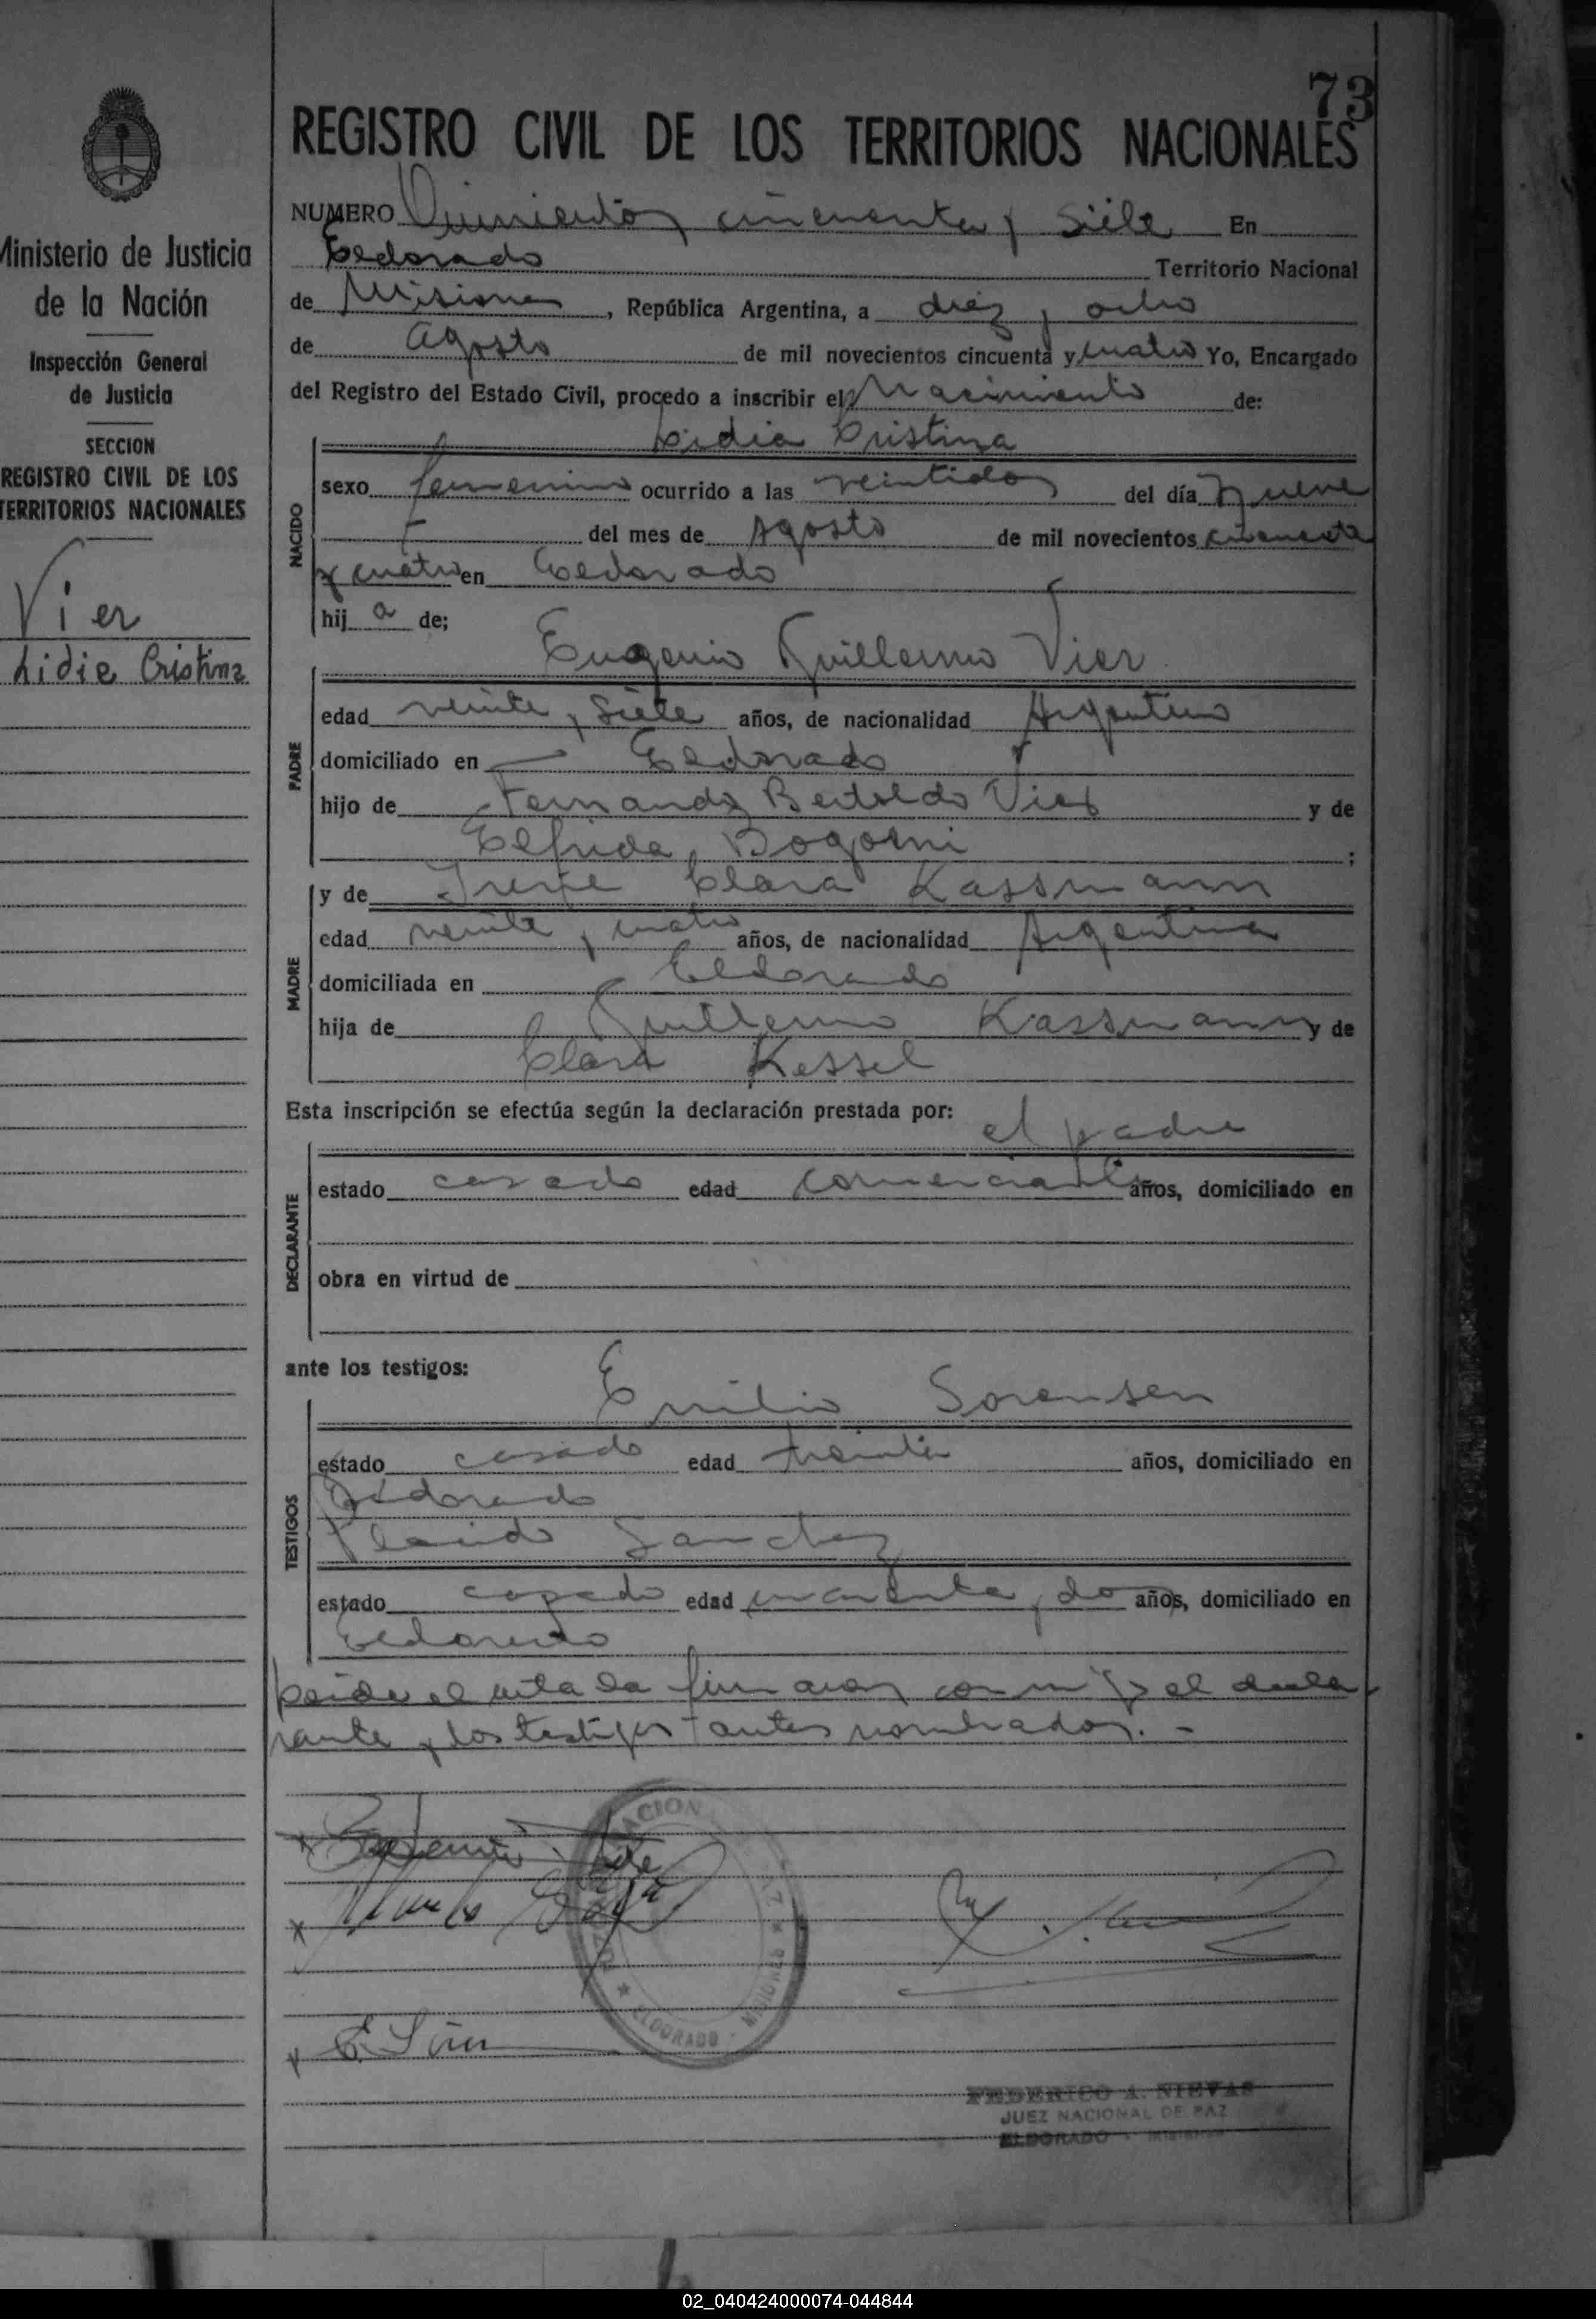 73
REGISTRO CIVIL DE LOS TERRITORIOS NACIONALES
Ministerio de Justicia
de la Nación
Inspección General
de Justicia
SECCION
REGISTRO CIVIL DE LOS
TERRITORIOS NACIONALES
Vier
Lidia Cristina
NUMERO Quinientos cincuenta y siete En
Eldorado Territorio Nacional
de Misiones, República Argentina, a diez y ocho
de Agosto de mil novecientos cincuenta y cuatro Yo, Encargado
del Registro del Estado Civil, procedo a inscribir el Nacimiento de:
NACIDO
Lidia Cristina
sexo femenino ocurrido a las veintidos del día nueve
del mes de Agosto de mil novecientos cincuenta
y cuatro en Eldorado
hij a de;
PADRE
Eugenio Guillermo Vier
edad veinte y siete años, de nacionalidad Argentino
domiciliado en Eldorado
hijo de Fernando Bertoldo Vier y de
Elfrida Bogorni ;
MADRE
y de Irene Clara Kassmann
edad veinte y cuatro años, de nacionalidad Argentina
domiciliada en Eldorado
hija de Guillermo Kassmann y de
Clara Kessel
Esta inscripción se efectúa según la declaración prestada por:
el padre
DECLARANTE
estado casado edad comerciante años, domiciliado en
obra en virtud de
ante los testigos:
TESTIGOS
Emilio Sorensen
estado casado edad treinta años, domiciliado en
Eldorado
Placido Sanchez
estado casado edad cuarenta y dos años, domiciliado en
Eldorado
Leida el acta la firmaron conmigo el decla
rante y los testigos antes nombrados. -
ELDORADO - MISIONES
FEDERICO A. NIEVAS
JUEZ NACIONAL DE PAZ
ELDORADO - MISIONES
02_040424000074-044844